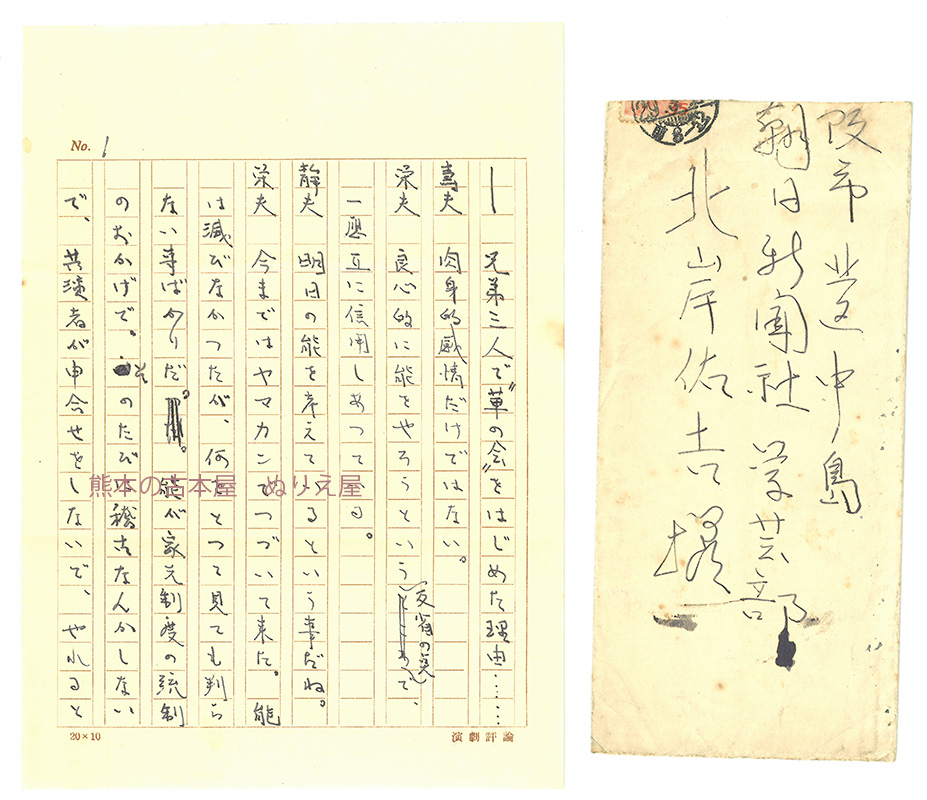 No. 1
― 兄弟三人で“華の会”をはじめた理由……
寿夫 肉身的感情だけではない。
栄夫 良心的に能をやろうという(反省の点)で、
一応互に信用しあっている。
静夫 明日の能を考えているという事だね。
栄夫 今まではヤマカンでつづいて来た。能
は滅びなかったが、何をとって見ても判ら
ない事ばかりだ。能が家元制度の統制
のおかげで。そのたび稽古なんかしない
で、共演者が申合せをしないで、やれると
20×10
演劇評論
熊本の古本屋 ぬりえ屋
阪市 北 中島
朝日新聞社 学芸部
北岸佑吉様